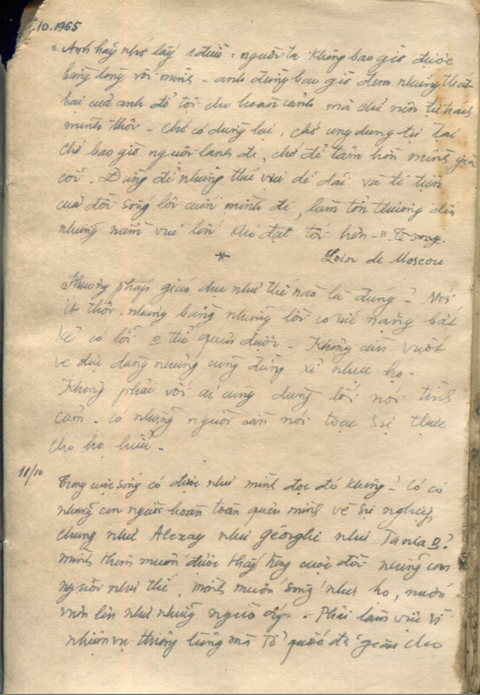 .10.1965
"Anh hãy nhớ lấy 1 điều: người ta không bao giờ được
bằng lòng với mình - anh đừng bao giờ đem những thất
bại của anh đổ tội cho hoàn cảnh mà chỉ nên tự trách
mình thôi - chớ có dừng lại, chớ ung dung tự tại
chớ bao giờ nguội lạnh đi, chớ để tâm hồn mình già
cỗi. Đừng để những thú vui dễ dãi và ti tiện
của đời sống lôi cuốn mình đi, làm tổn thương đến
những niềm vui lớn khó đạt tới hơn - "
Loin de Moscou
*
Phương pháp giáo dục như thế nào là đúng? Nói
ít thôi, nhưng bằng những lời có sức nặng bất
kể có lỗi thể quên được - Không cần vuốt
ve dịu dàng nhưng cũng đừng xỉ nhục họ -
Không phải với ai cũng dùng lối nói tình
cảm - có những người cần nói toạc sự thực
cho họ hiểu -
11/10
Trong cuộc sống có được như mình đọc đó không? Có có
những con người hoàn toàn quên mình về sự nghiệp
chung như Alecxay như Géorghi như Tania ?
mình thèm muốn được thấy trong cuộc đời những con
người như thế, mình muốn sống như họ, muốn
vươn lên như những người ấy - Phải làm việc vì
nhiệm vụ thường lòng mà Tổ quốc đã giao cho